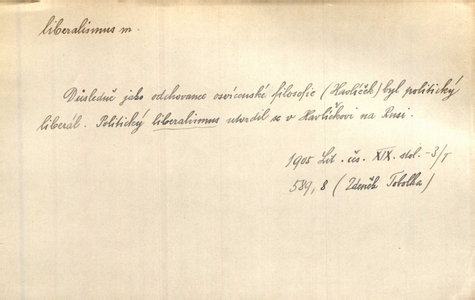 liberalismus m.
Důsledně jako odchovanec osvícenské filosofie (Havlíček) byl politický
liberál. Politický liberalismus utvrdil se v Havlíčkovi na Rusi.
1905 Lit. čes. XIX. stol. -3/I
589, 8 (Zdeněk Tobolka)